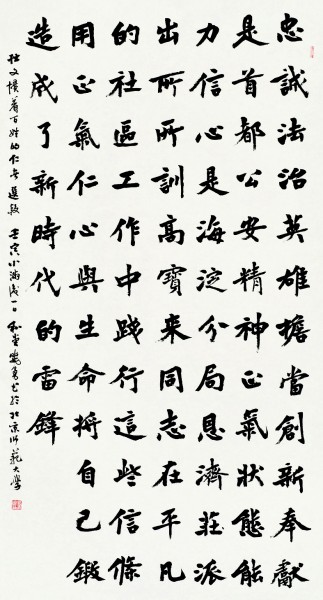 忠誠法治英雄擔當創新奉獻
是首都公安精神正氣狀態能
力信心是海淀分局恩濟莊派
出所所訓高寶來同志在平凡
的社區工作中踐行這些信條
用正氣仁心與生命將自己鍛
造成了新時代的雷鋒
文懷着百姓的仁者 壬寅小滿後一日 書於北京師範大學